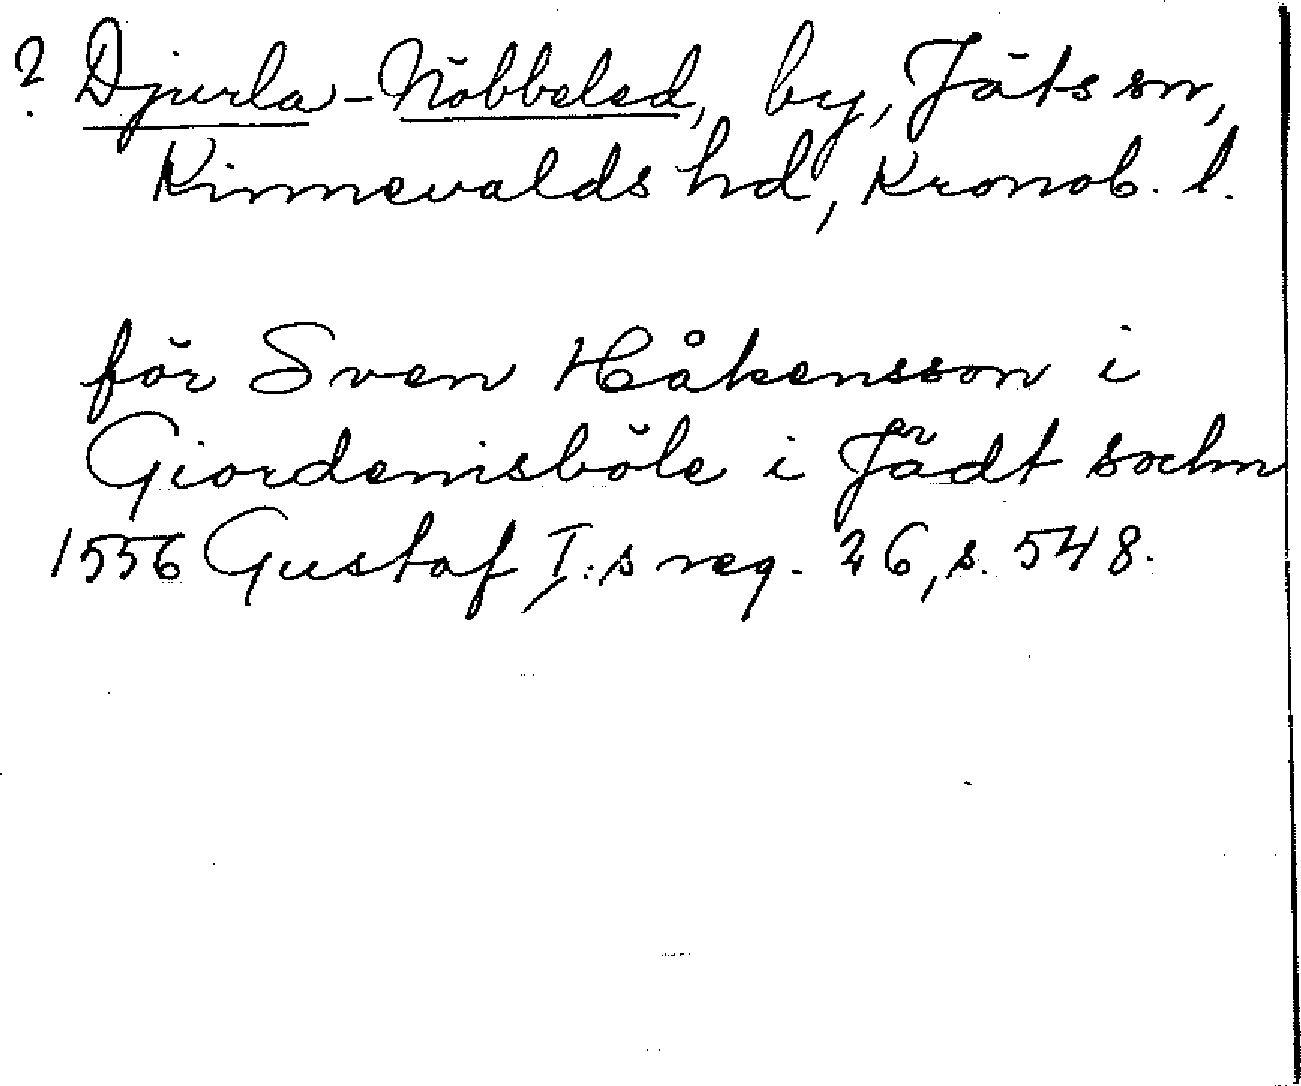 ? Djurla-Nöbbeled, by, Jäts sn,
Kinnevalds hd, Kronob. l.
för Sven Håkensson i
Giordemsböle i Jädt sochn
1556 Gustaf I:s reg. 26, s. 548.